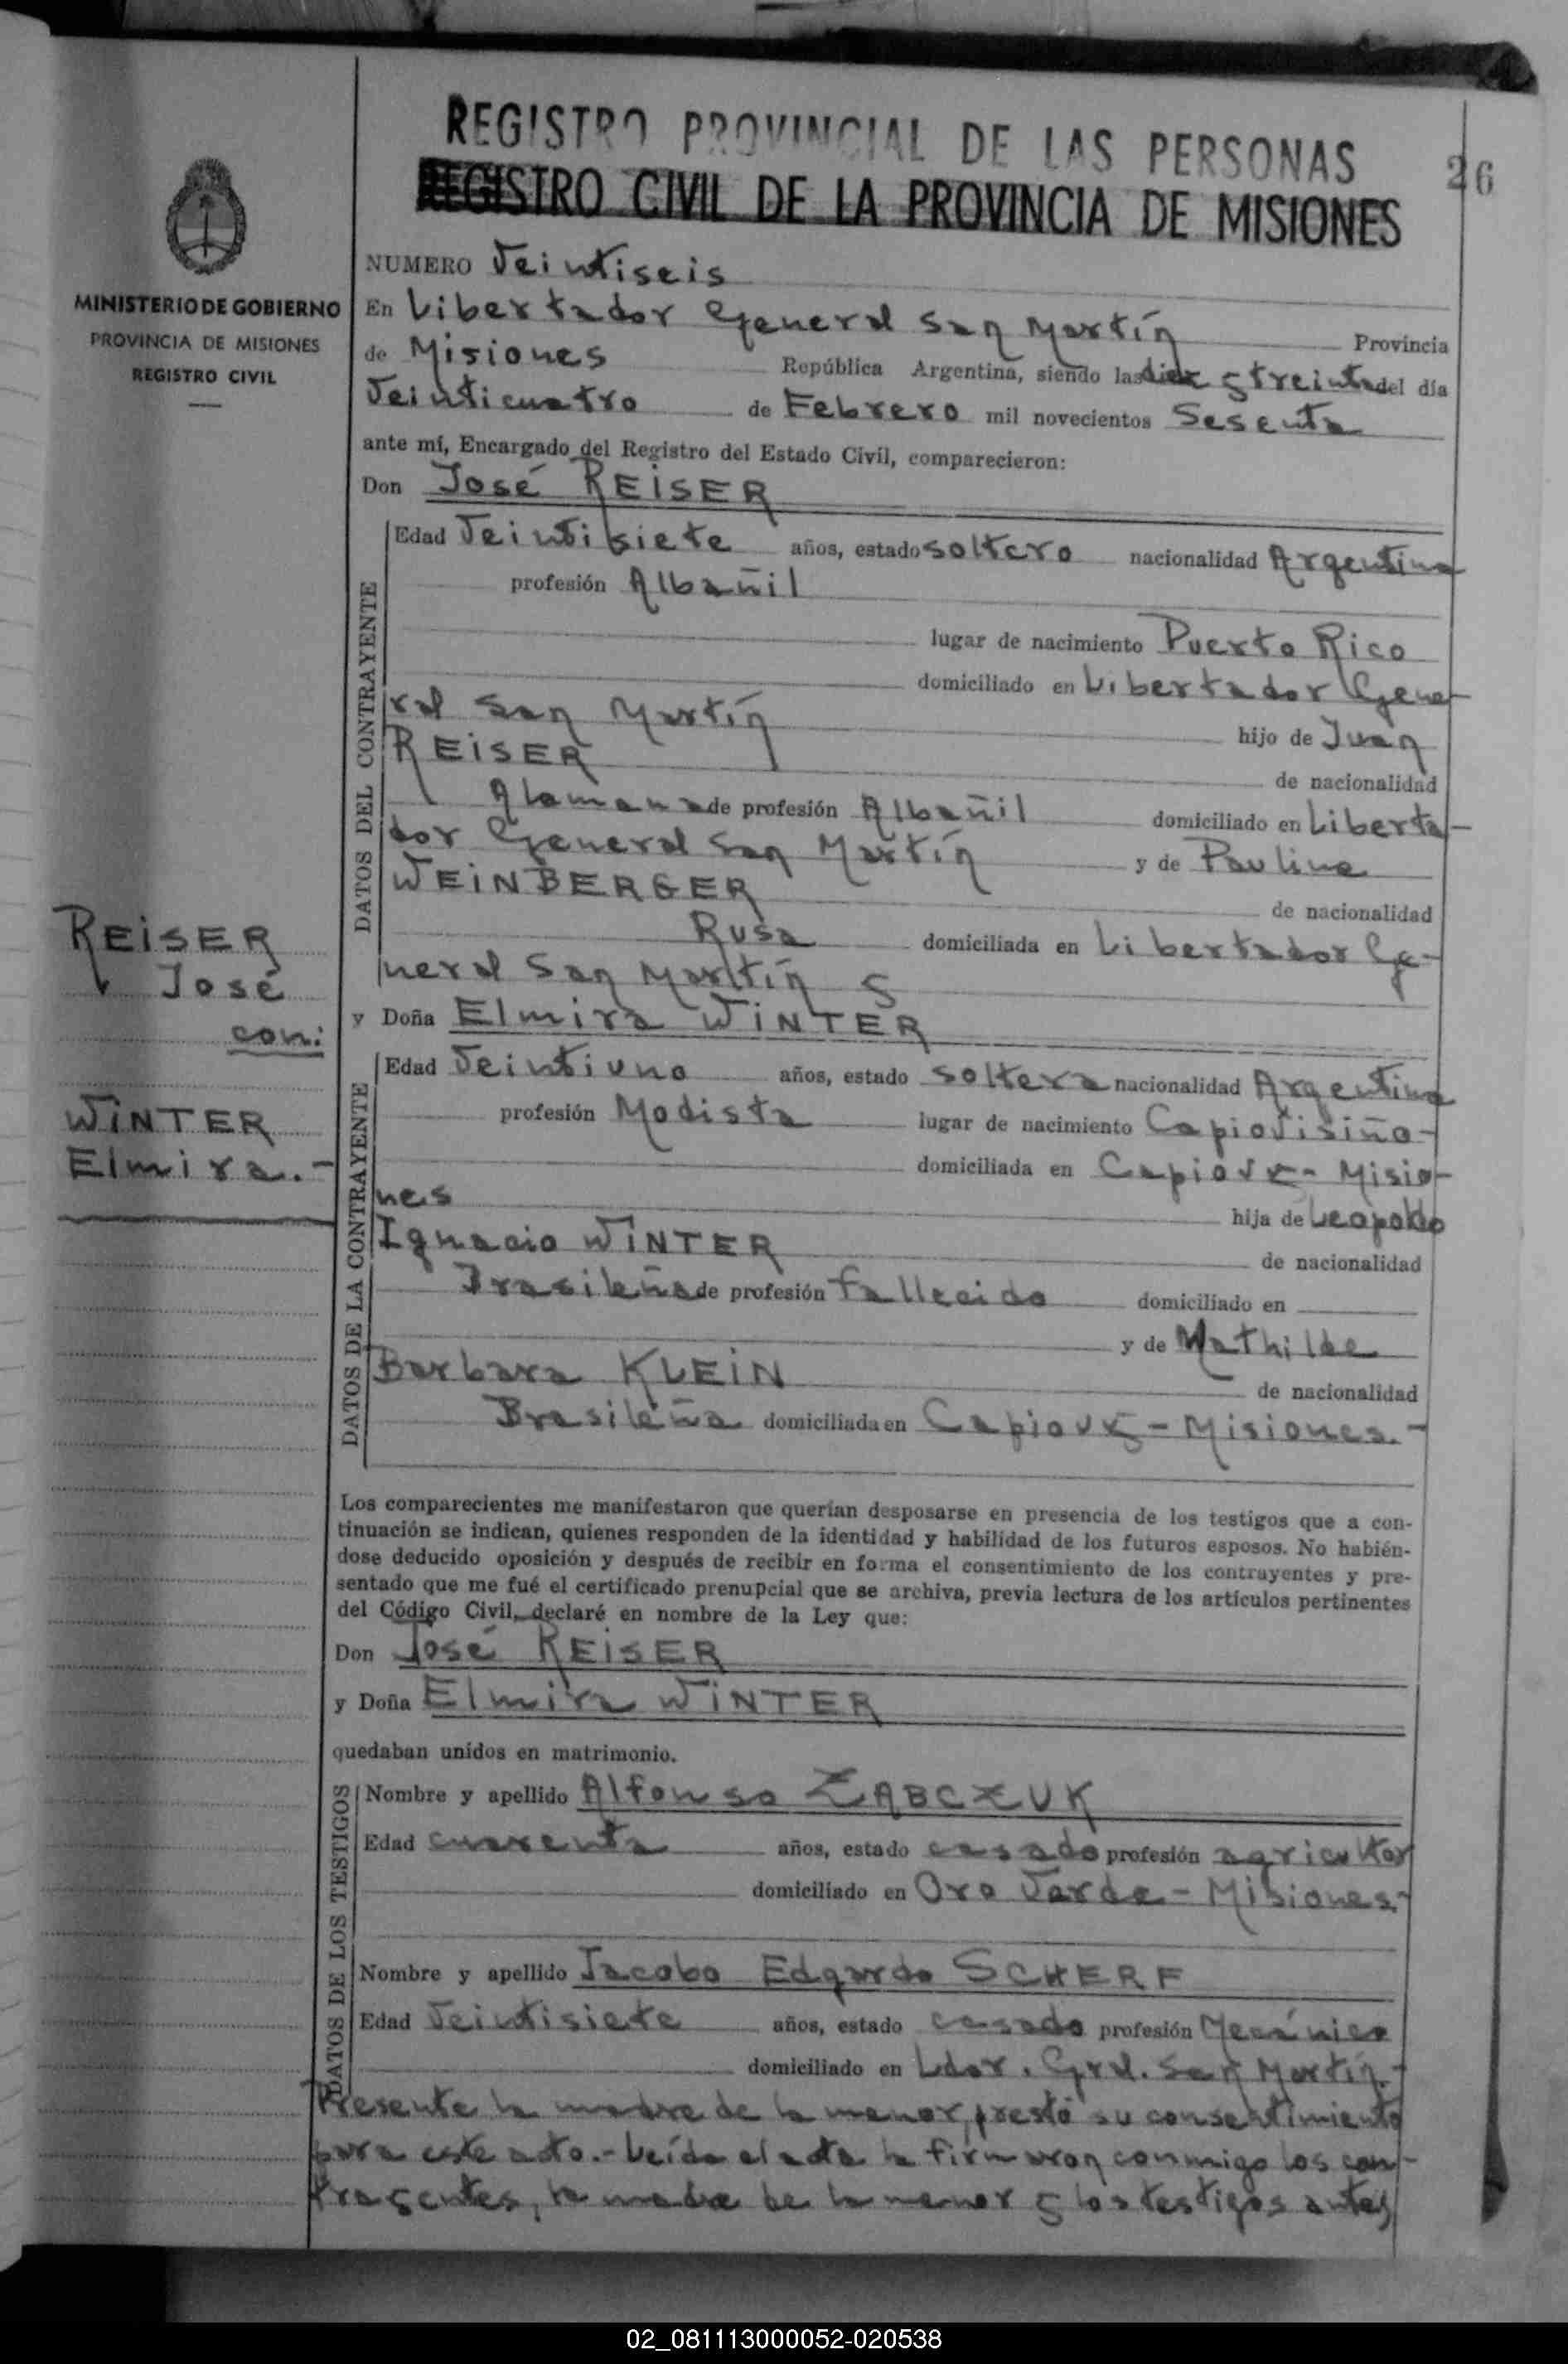 REGISTRO PROVINCIAL DE LAS PERSONAS
26
REGISTRO CIVIL DE LA PROVINCIA DE MISIONES
MINISTERIO DE GOBIERNO
PROVINCIA DE MISIONES
REGISTRO CIVIL
NUMERO Veintiseis
En Libertador General San Martín Provincia
de Misiones República Argentina, siendo las diez y treinta del día
Veinticuatro de Febrero mil novecientos Sesenta
ante mí, Encargado del Registro del Estado Civil, comparecieron:
Don José REISER
DATOS DEL CONTRAYENTE
Edad Veintisiete años, estado soltero nacionalidad Argentina
profesión Albañil
lugar de nacimiento Puerto Rico
domiciliado en Libertador Gene-
ral San Martín hijo de Juan
REISER de nacionalidad
Alemana de profesión Albañil domiciliado en Liberta-
dor General San Martín y de Paulina
WEINBERGER de nacionalidad
Rusa domiciliada en Libertador Ge-
neral San Martín y
REISER
José
con:
WINTER
Elmira.-
y Doña Elmira WINTER
DATOS DE LA CONTRAYENTE
Edad Veintiuno años, estado soltera nacionalidad Argentina
profesión Modista lugar de nacimiento Capiovisiño-
domiciliada en Capiovy- Misio-
nes hija de Leopoldo
Ignacio WINTER de nacionalidad
Brasileña de profesión fallecido domiciliado en
y de Mathilde
Barbara KLEIN de nacionalidad
Brasileña domiciliada en Capiovy - Misiones.-
Los comparecientes me manifestaron que querían desposarse en presencia de los testigos que a con-
tinuación se indican, quienes responden de la identidad y habilidad de los futuros esposos. No habién-
dose deducido oposición y después de recibir en forma el consentimiento de los contrayentes y pre-
sentado que me fué el certificado prenupcial que se archiva, previa lectura de los artículos pertinentes
del Código Civil, declaré en nombre de la Ley que:
Don José REISER
y Doña Elmira WINTER
quedaban unidos en matrimonio.
DATOS DE LOS TESTIGOS
Nombre y apellido Alfonso ZABCZUK
Edad cuarenta años, estado casado profesión agricultor
domiciliado en Oro Verde - Misiones.-
Nombre y apellido Jacobo Edgardo SCHERF
Edad Veintisiete años, estado casado profesión Mecánico
domiciliado en Ldor. Gral. San Martín.-
Presente la madre de la menor, prestó su consentimiento
para este acto.- Leída el acta la firmaron conmigo los con-
trayentes, la madre de la menor y los testigos antes
02_081113000052-020538